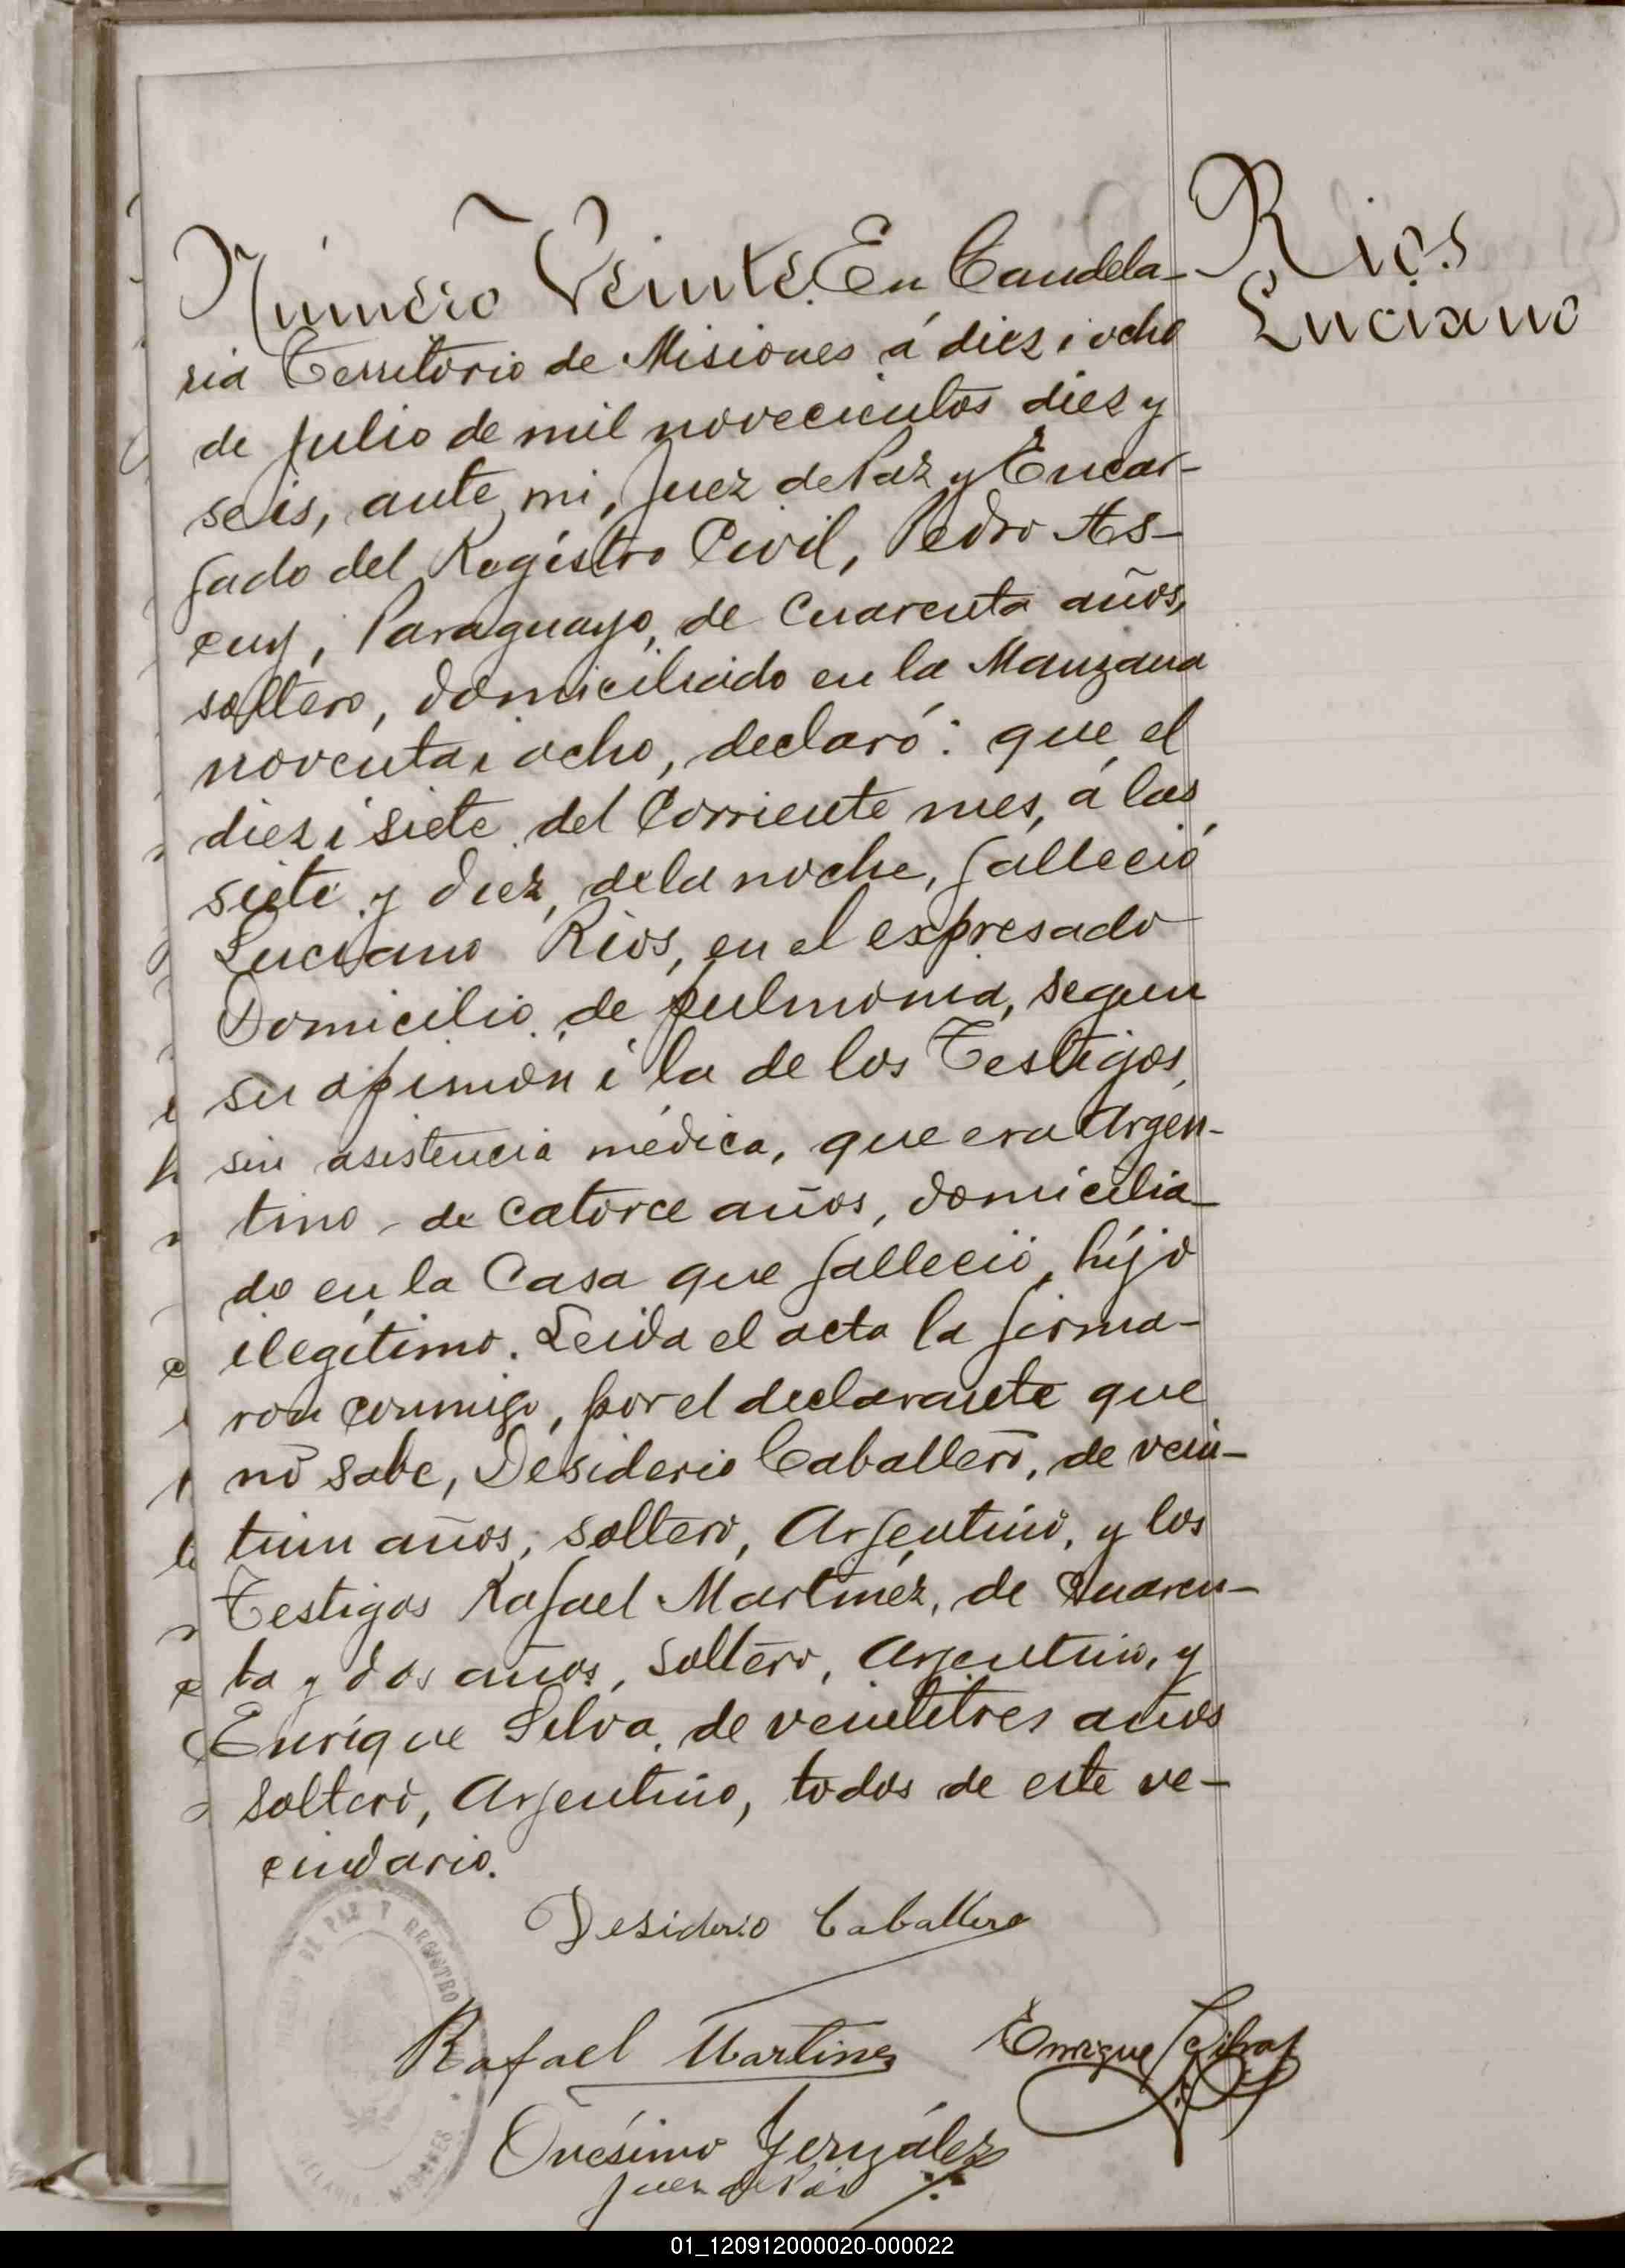 Número Veinte. En Candela-
ria Territorio de Misiones á diez i ocho
de Julio de mil novecientos diez y
seis, ante mi, Juez de Paz y Encar-
gado del Registro Civil, Pedro As-
cuy, Paraguayo, de cuarenta años,
soltero, domiciliado en la Manzana
noventa i ocho, declaró: que el
diez i siete del corriente mes, á las
siete y diez, de la noche, falleció
Luciano Rios, en el expresado
Domicilio de pulmonia, segun
su opinión i la de los Testigos,
sin asistencia médica, que era Argen-
tino de catorce años, domicilia-
do en la casa que falleció, hijo
ilegítimo. Leida el acta la firma-
ron conmigo, por el declarante que
nó sabe, Desiderio Caballero, de vein-
tiun años, soltero, Argentino, y los
Testigos Rafael Martinez, de cuaren-
ta y dos años, soltero, Argentino, y
Enrique Silva, de veintitres años
soltero, Argentino, todos de este ve-
cindario.
Rios
Luciano
Desiderio Caballero
Rafael Martinez
Enrique Silva
Onésimo González
Juez de Paz
JUZGADO DE PAZ Y REGISTRO
MISIONES
01_120912000020-000022